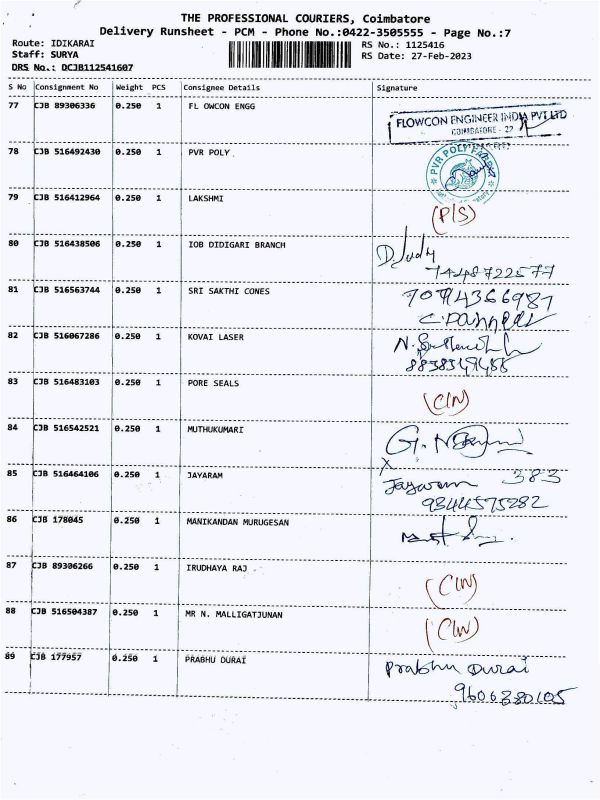 THE PROFESSIONAL COURIERS, Coimbatore
Delivery Runsheet - PCM - Phone No.:0422-3505555 - Page No.:7
Route: IDIKARAI RS No.: 1125416
Staff: SURYA RS Date: 27-Feb-2023
DRS No.: DCJB112541607
S No Consignment No Weight PCS Consignee Details Signature
77 CJB 89306336 0.250 1 FL OWCON ENGG
FLOWCON ENGINEER INDIA PVT LTD
COIMBATORE - 22
78 CJB 516492430 0.250 1 PVR POLY
PVR POLY
79 CJB 516412964 0.250 1 LAKSHMI (P/S)
80 CJB 516438506 0.250 1 IOB DIDIGARI BRANCH D. Judy
7448722577
81 CJB 516563744 0.250 1 SRI SAKTHI CONES
82 CJB 516067286 0.250 1 KOVAI LASER
83 CJB 516483103 0.250 1 PORE SEALS (CIN)
84 CJB 516542521 0.250 1 MUTHUKUMARI
85 CJB 516464106 0.250 1 JAYARAM Jayaram 383
9344575282
86 CJB 178045 0.250 1 MANIKANDAN MURUGESAN
87 CJB 89306266 0.250 1 IRUDHAYA RAJ (CIN)
88 CJB 516504387 0.250 1 MR N. MALLIGATJUNAN (CIN)
89 CJB 177957 0.250 1 PRABHU DURAI Prabhu Durai
9606380105